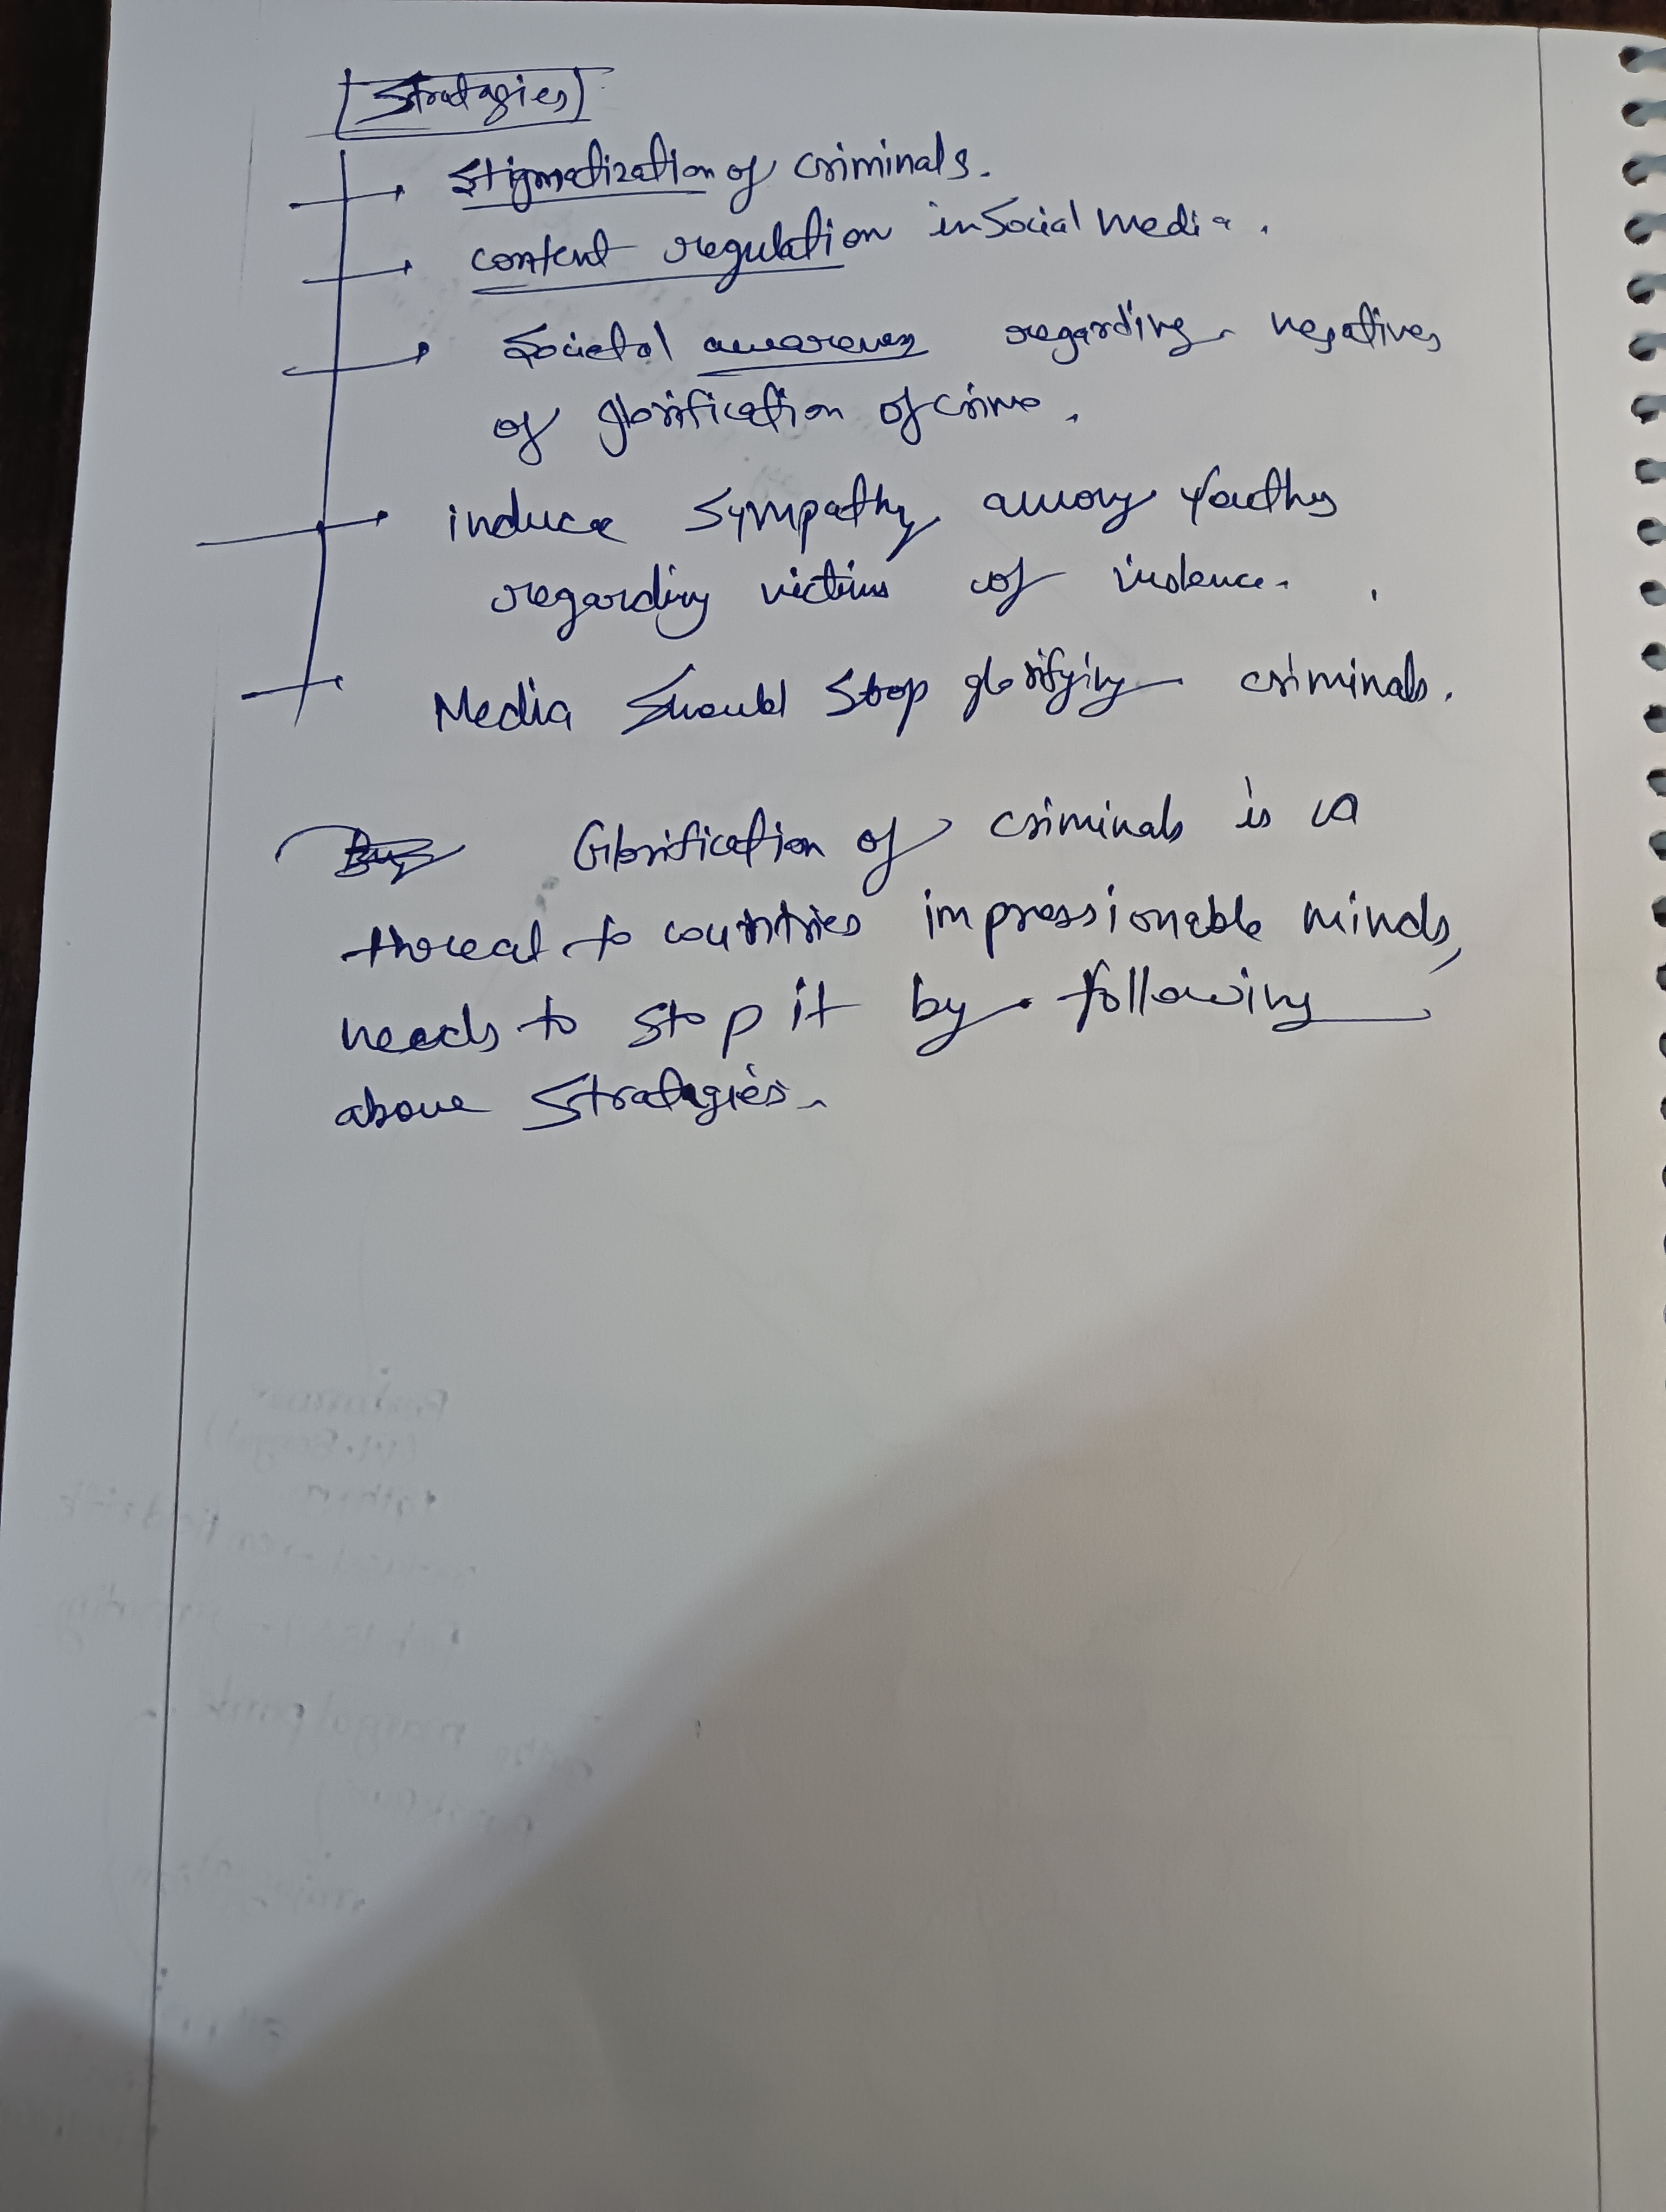 Stratagies
Stigmatization of criminals.
content regulation in Social media.
Societal awareness regarding negatives
of glorification of crime.
induce sympathy among youths
regarding victims of violence.
Media should stop glorifying criminals.
Glorification of criminals is a
threat to countries impressionable minds,
needs to stop it by following
above Stratagies.